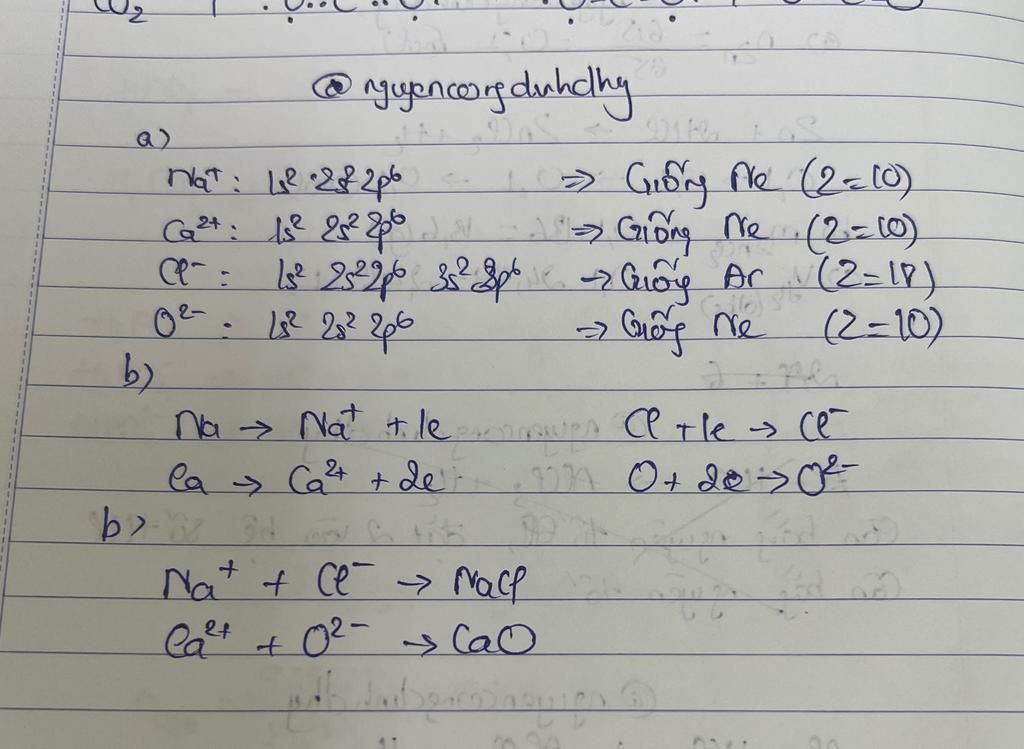 CO₂
@nguyencongduhdhy
a)
Na⁺: 1s² 2s² 2p⁶ => Giống Ne (Z=10)
Ca²⁺: 1s² 2s² 2p⁶ => Giống Ne (Z=10)
Cl⁻: 1s² 2s² 2p⁶ 3s² 3p⁶ -> Giống Ar (Z=18)
O²⁻: 1s² 2s² 2p⁶ => Giống Ne (Z=10)
b)
Na → Na⁺ + 1e Cl + 1e → Cl⁻
Ca → Ca²⁺ + 2e O + 2e → O²⁻
b>
Na⁺ + Cl⁻ → NaCl
Ca²⁺ + O²⁻ → CaO